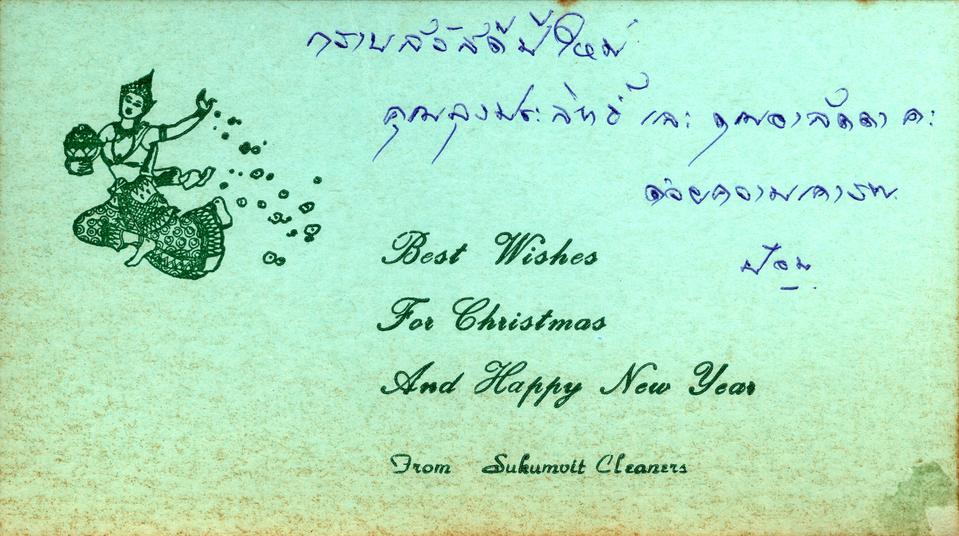 กราบสวัสดีปีใหม่
คุณลุงประสิทธิ์ และ คุณอาลัดดา ค่ะ
ด้วยความเคารพ
Best Wishes
For Christmas
And Happy New Year
From Sukumvit Cleaners